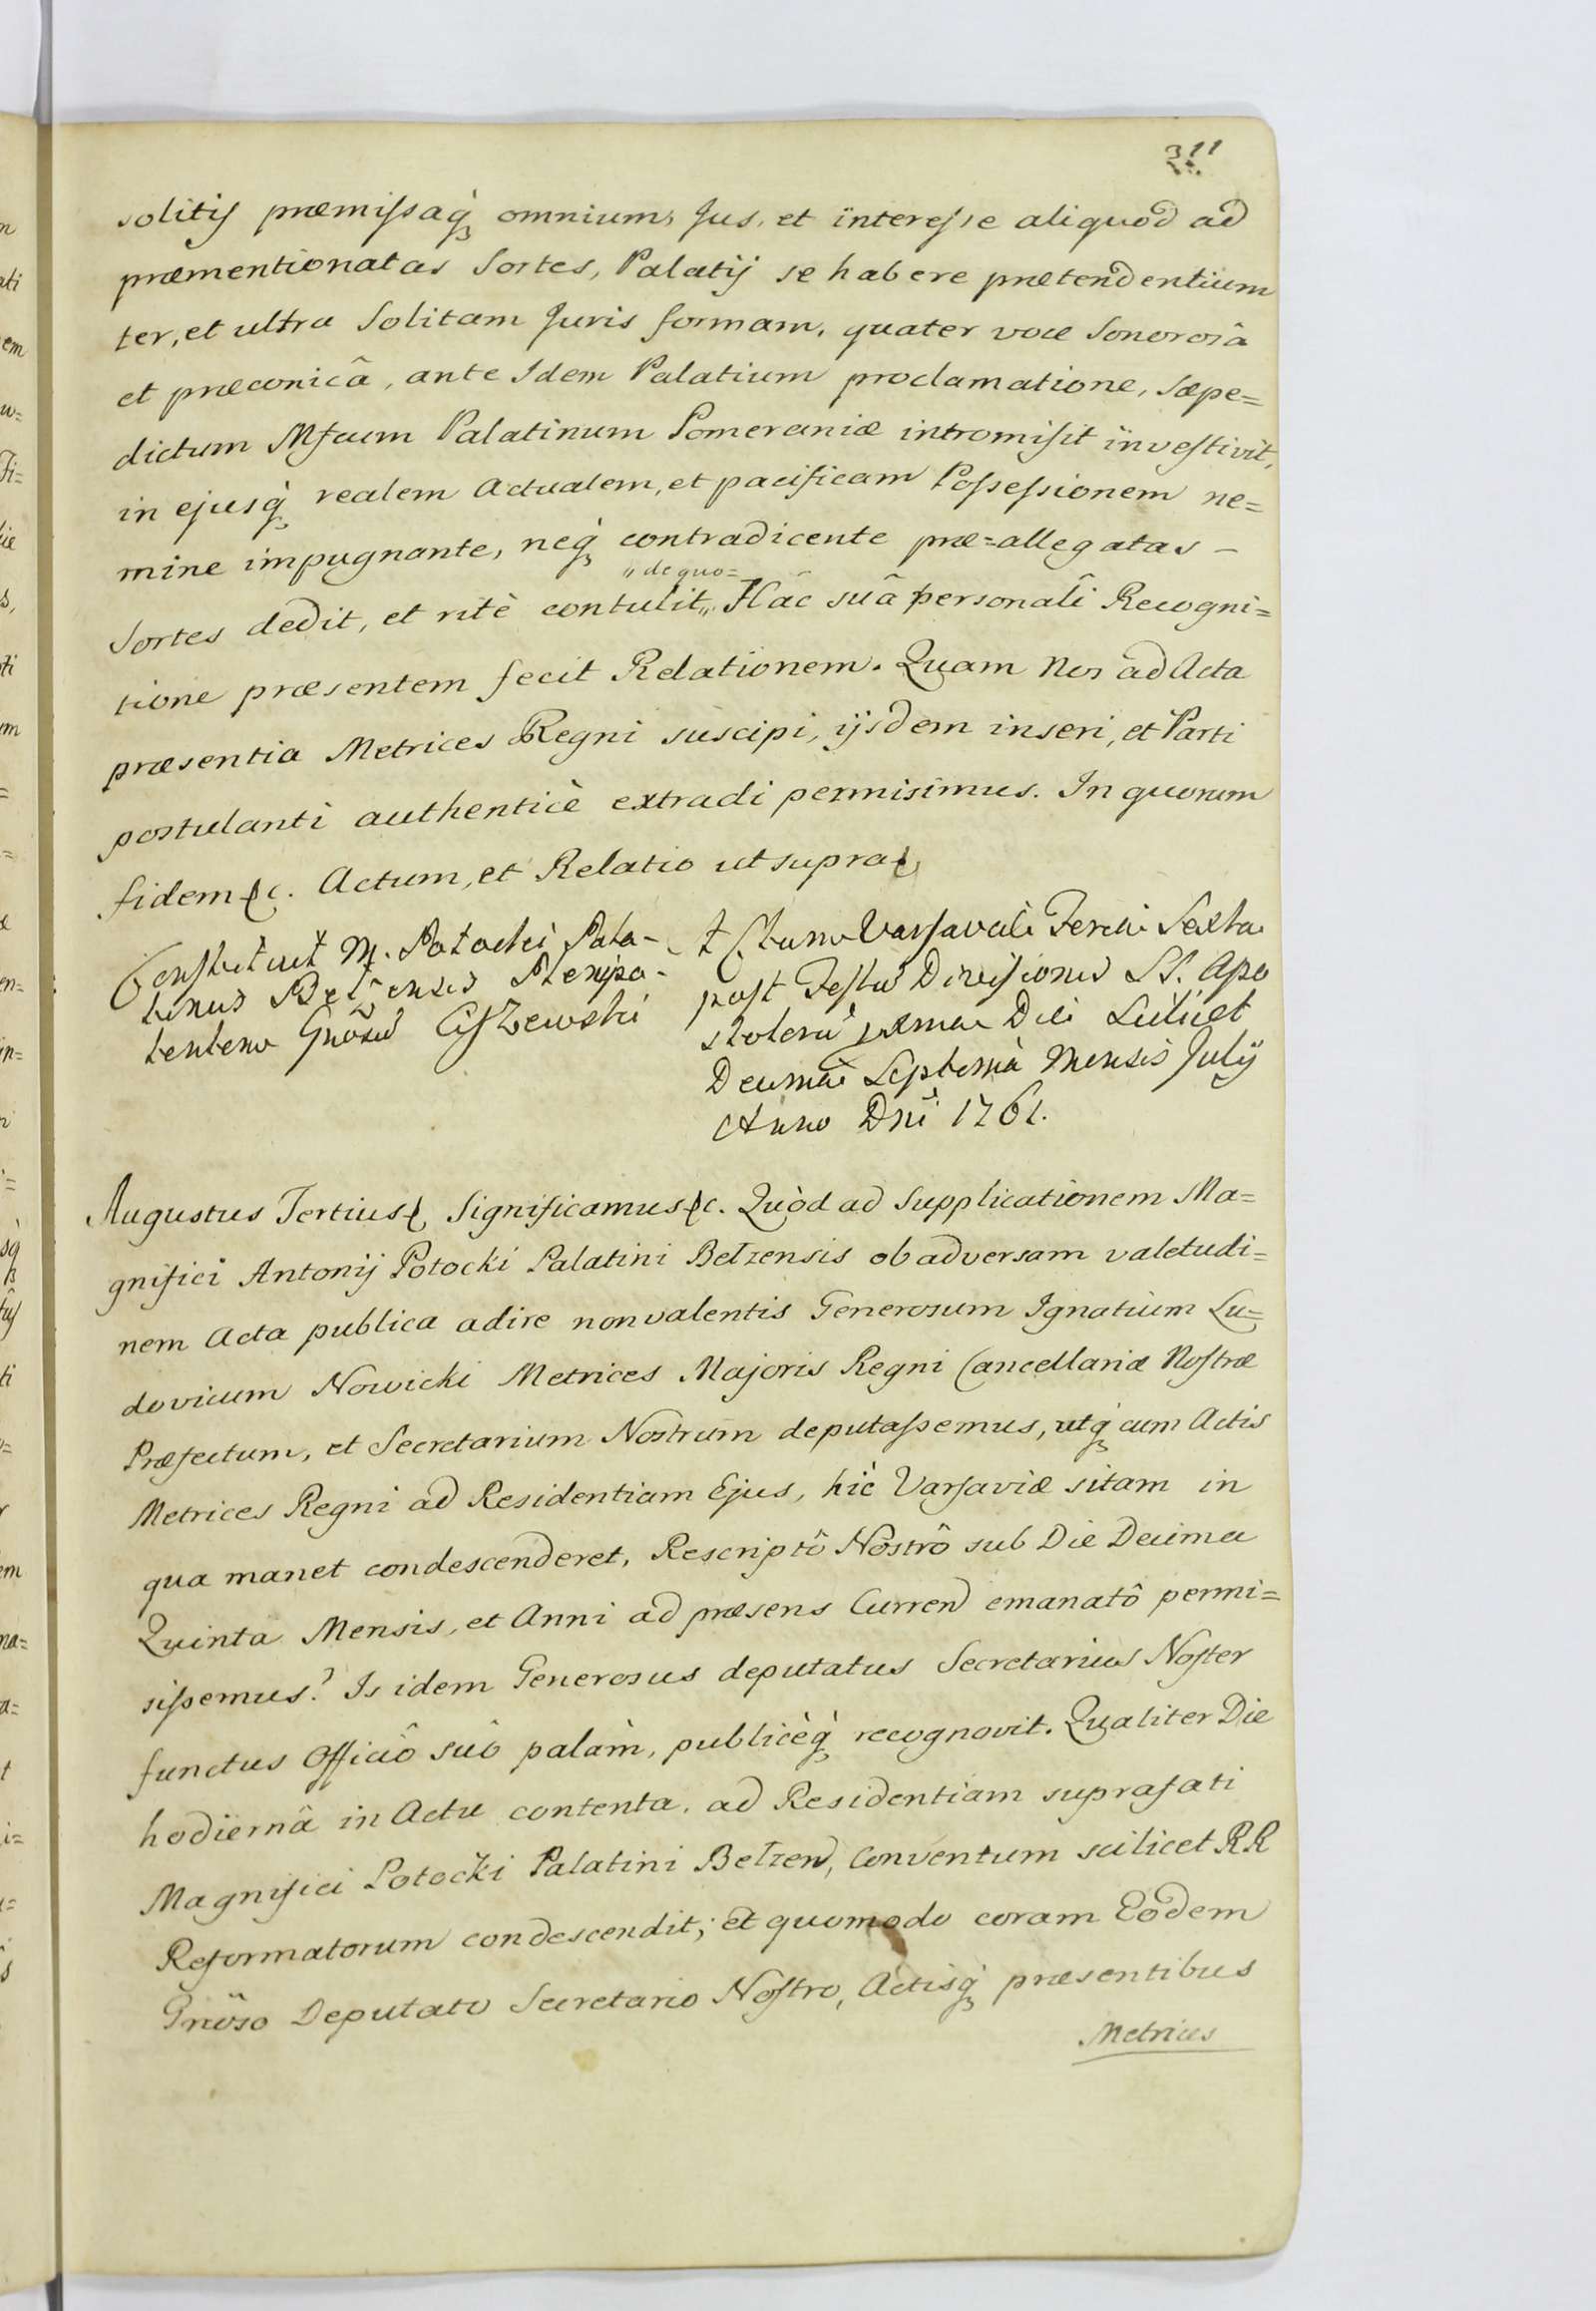 311
solitis præmissaq́ omnium, Jus, et interesse aliquod ad
præmentionatas Sortes, Palatij se habere prætendentium
ter, et ultra Solitam Juris formam, quater voce Sonorosâ
et præconicâ, ante Idem Palatium proclamatione, Sæpe=
dictum Mfcum Palatinum Pomeraniæ intromisit investivit,
in ejusq́ realem Actualem, et pacificam Possessionem ne=
mine impugnante, neq́ contradicente præ=allegatas –
„de quo=
Sortes dedit, et ritè contulit„ Hâc suâ personali Recogni=
tione præsentem fecit Relationem. Quam Nos ad Acta
præsentia Metrices Regni suscipi, ijsdem inseri, et Parti
postulanti authenticè extradi permisimus. In quorum
fidem &c. Actum, et Relatio ut supra&
Constituit M. Potocki Pala-
tinus Bełzensis Plenipo-
tentem Gnosū Ciszewski
Actum Varsaviæ Feria Sexta
post Festū Divisionis SS. Apo
stolorū prima Die Scilicet
Decima Septima Mensis July
Anno Dnī 1761.
Augustus Tertius& Significamus &c. Quòd ad Supplicationem Ma=
gnifici Antonij Potocki Palatini Bełzensis ob adversam valetudi=
nem Acta publica adire non valentis Generosum Ignatium Lu=
dovicum Nowicki Metrices Majoris Regni Cancellariæ Nostræ
Præfectum, et Secretarium Nostrum deputassemus, utq́ cum Actis
Metrices Regni ad Residentiam Ejus, hìc Varsaviæ sitam in
qua manet condescenderet, Rescriptô Nostrô sub Die Decima
Quinta Mensis, et Anni ad præsens Curren emanatô permi=
sissemus? Is idem Generosus deputatus Secretarius Noster
functus Officiô suô palàm, publicèq́ recognovit. Qualiter Die
hodiernâ in Actu contenta, ad Residentiam suprafati
Magnifici Potocki Palatini Bełzen, Conventum scilicet RR
Reformatorum condescendit; et quomodo coram Eôdem
Gnoso Deputato Secretario Nostro, Actisq́ præsentibus
Metrices